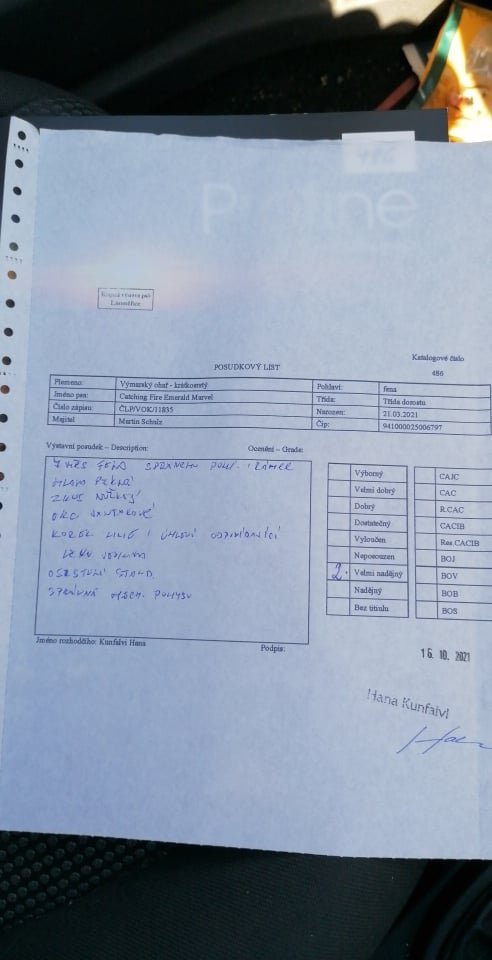 486
Proline
Krajská výstava psů
Litoměřice
POSUDKOVÝ LIST
Katalogové číslo
486
Plemeno: Výmarský ohař - krátkosrstý Pohlaví: fena
Jméno psa: Catching Fire Emerald Marvel Třída: Třída dorostu
Číslo zápisu: ČLP/VOK/11835 Narozen: 21.03.2021
Majitel Martin Schulz Čip: 941000025006797
Výstavní posudek – Description: Ocenění – Grade:
7 MĚS FENA SPRÁVNÉHO POHL. I RÁMCE
HLAVA PĚKNÁ
ZKUS NŮŽKY
OKO
KOREK LINIE I ÚHLENÍ ODPOVÍDAJÍCÍ
VĚKU
OSRSTĚNÍ STAND.
SPRÁVNÁ MECH. POHYBU
Výborný CAJC
Velmi dobrý CAC
Dobrý R.CAC
Dostatečný CACIB
Vyloučen Res.CACIB
Neposouzen BOJ
2. Velmi nadějný BOV
Nadějný BOB
Bez titulu BOS
Jméno rozhodčího: Kunfalvi Hana Podpis:
16. 10. 2021
Hana Kunfalvi